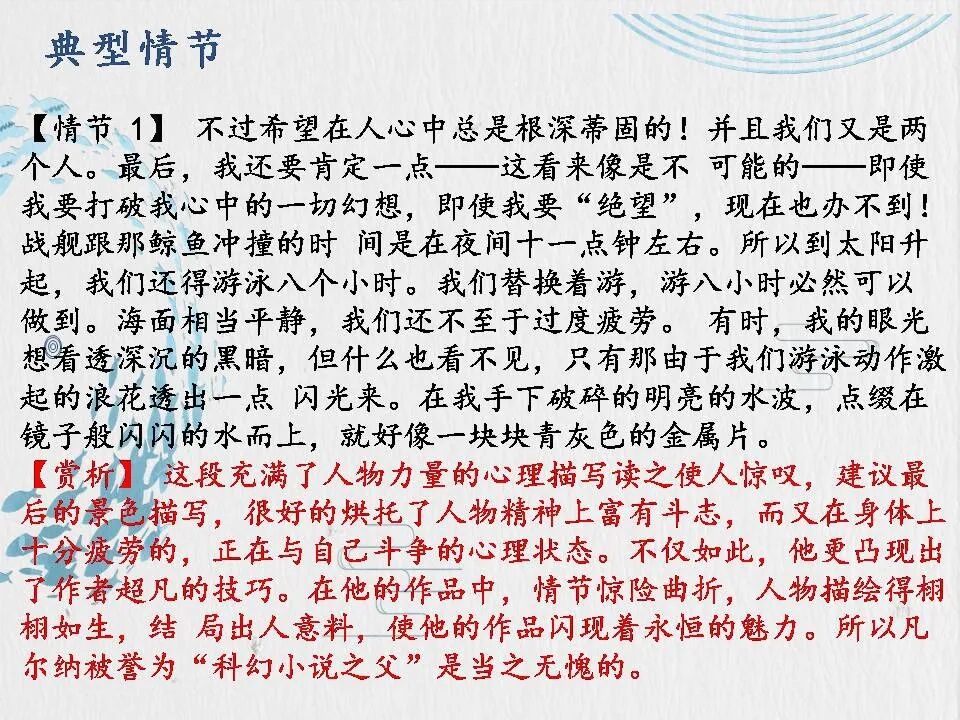 典型情节
【情节 1】 不过希望在人心中总是根深蒂固的！并且我们又是两
个人。最后，我还要肯定一点——这看来像是不 可能的——即使
我要打破我心中的一切幻想，即使我要“绝望”，现在也办不到！
战舰跟那鲸鱼冲撞的时 间是在夜间十一点钟左右。所以到太阳升
起，我们还得游泳八个小时。我们替换着游，游八小时必然可以
做到。海面相当平静，我们还不至于过度疲劳。 有时，我的眼光
想看透深沉的黑暗，但什么也看不见，只有那由于我们游泳动作激
起的浪花透出一点 闪光来。在我手下破碎的明亮的水波，点缀在
镜子般闪闪的水而上，就好像一块块青灰色的金属片。
【赏析】 这段充满了人物力量的心理描写读之使人惊叹，建议最
后的景色描写，很好的烘托了人物精神上富有斗志，而又在身体上
十分疲劳的，正在与自己斗争的心理状态。不仅如此，他更凸现出
了作者超凡的技巧。在他的作品中，情节惊险曲折，人物描绘得栩
栩如生，结 局出人意料，使他的作品闪现着永恒的魅力。所以凡
尔纳被誉为“科幻小说之父”是当之无愧的。